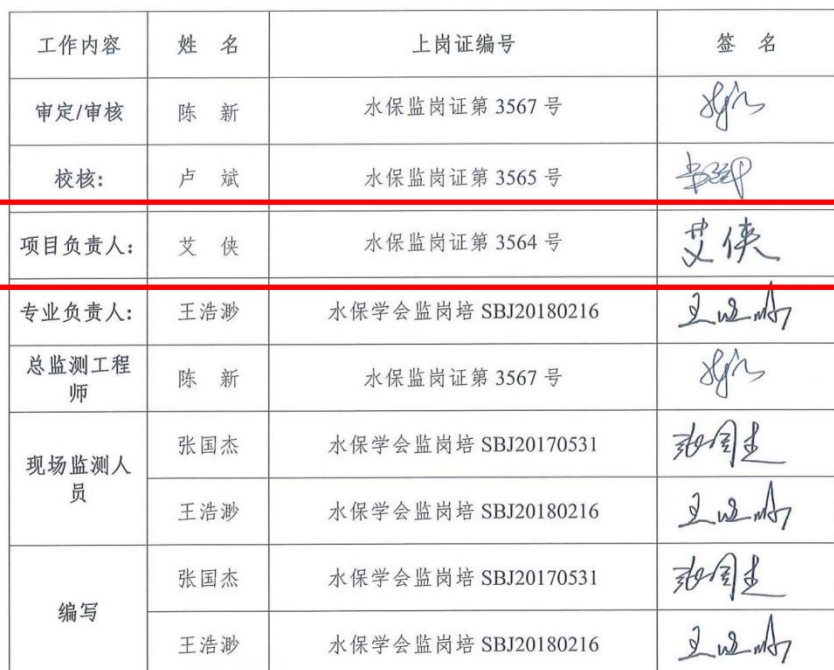 工作内容 姓 名 上岗证编号 签 名
审定/审核 陈 新 水保监岗证第 3567 号
校核: 卢 斌 水保监岗证第 3565 号
项目负责人: 艾 侠 水保监岗证第 3564 号 艾侠
专业负责人: 王浩渺 水保学会监岗培 SBJ20180216
总监测工程
师 陈 新 水保监岗证第 3567 号
现场监测人
员 张国杰 水保学会监岗培 SBJ20170531 张国杰
王浩渺 水保学会监岗培 SBJ20180216
编写 张国杰 水保学会监岗培 SBJ20170531 张国杰
王浩渺 水保学会监岗培 SBJ20180216